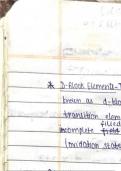 * D-Block Elements-T
known as d-blo
transition elem
filled
incomplete field
(oxidation state